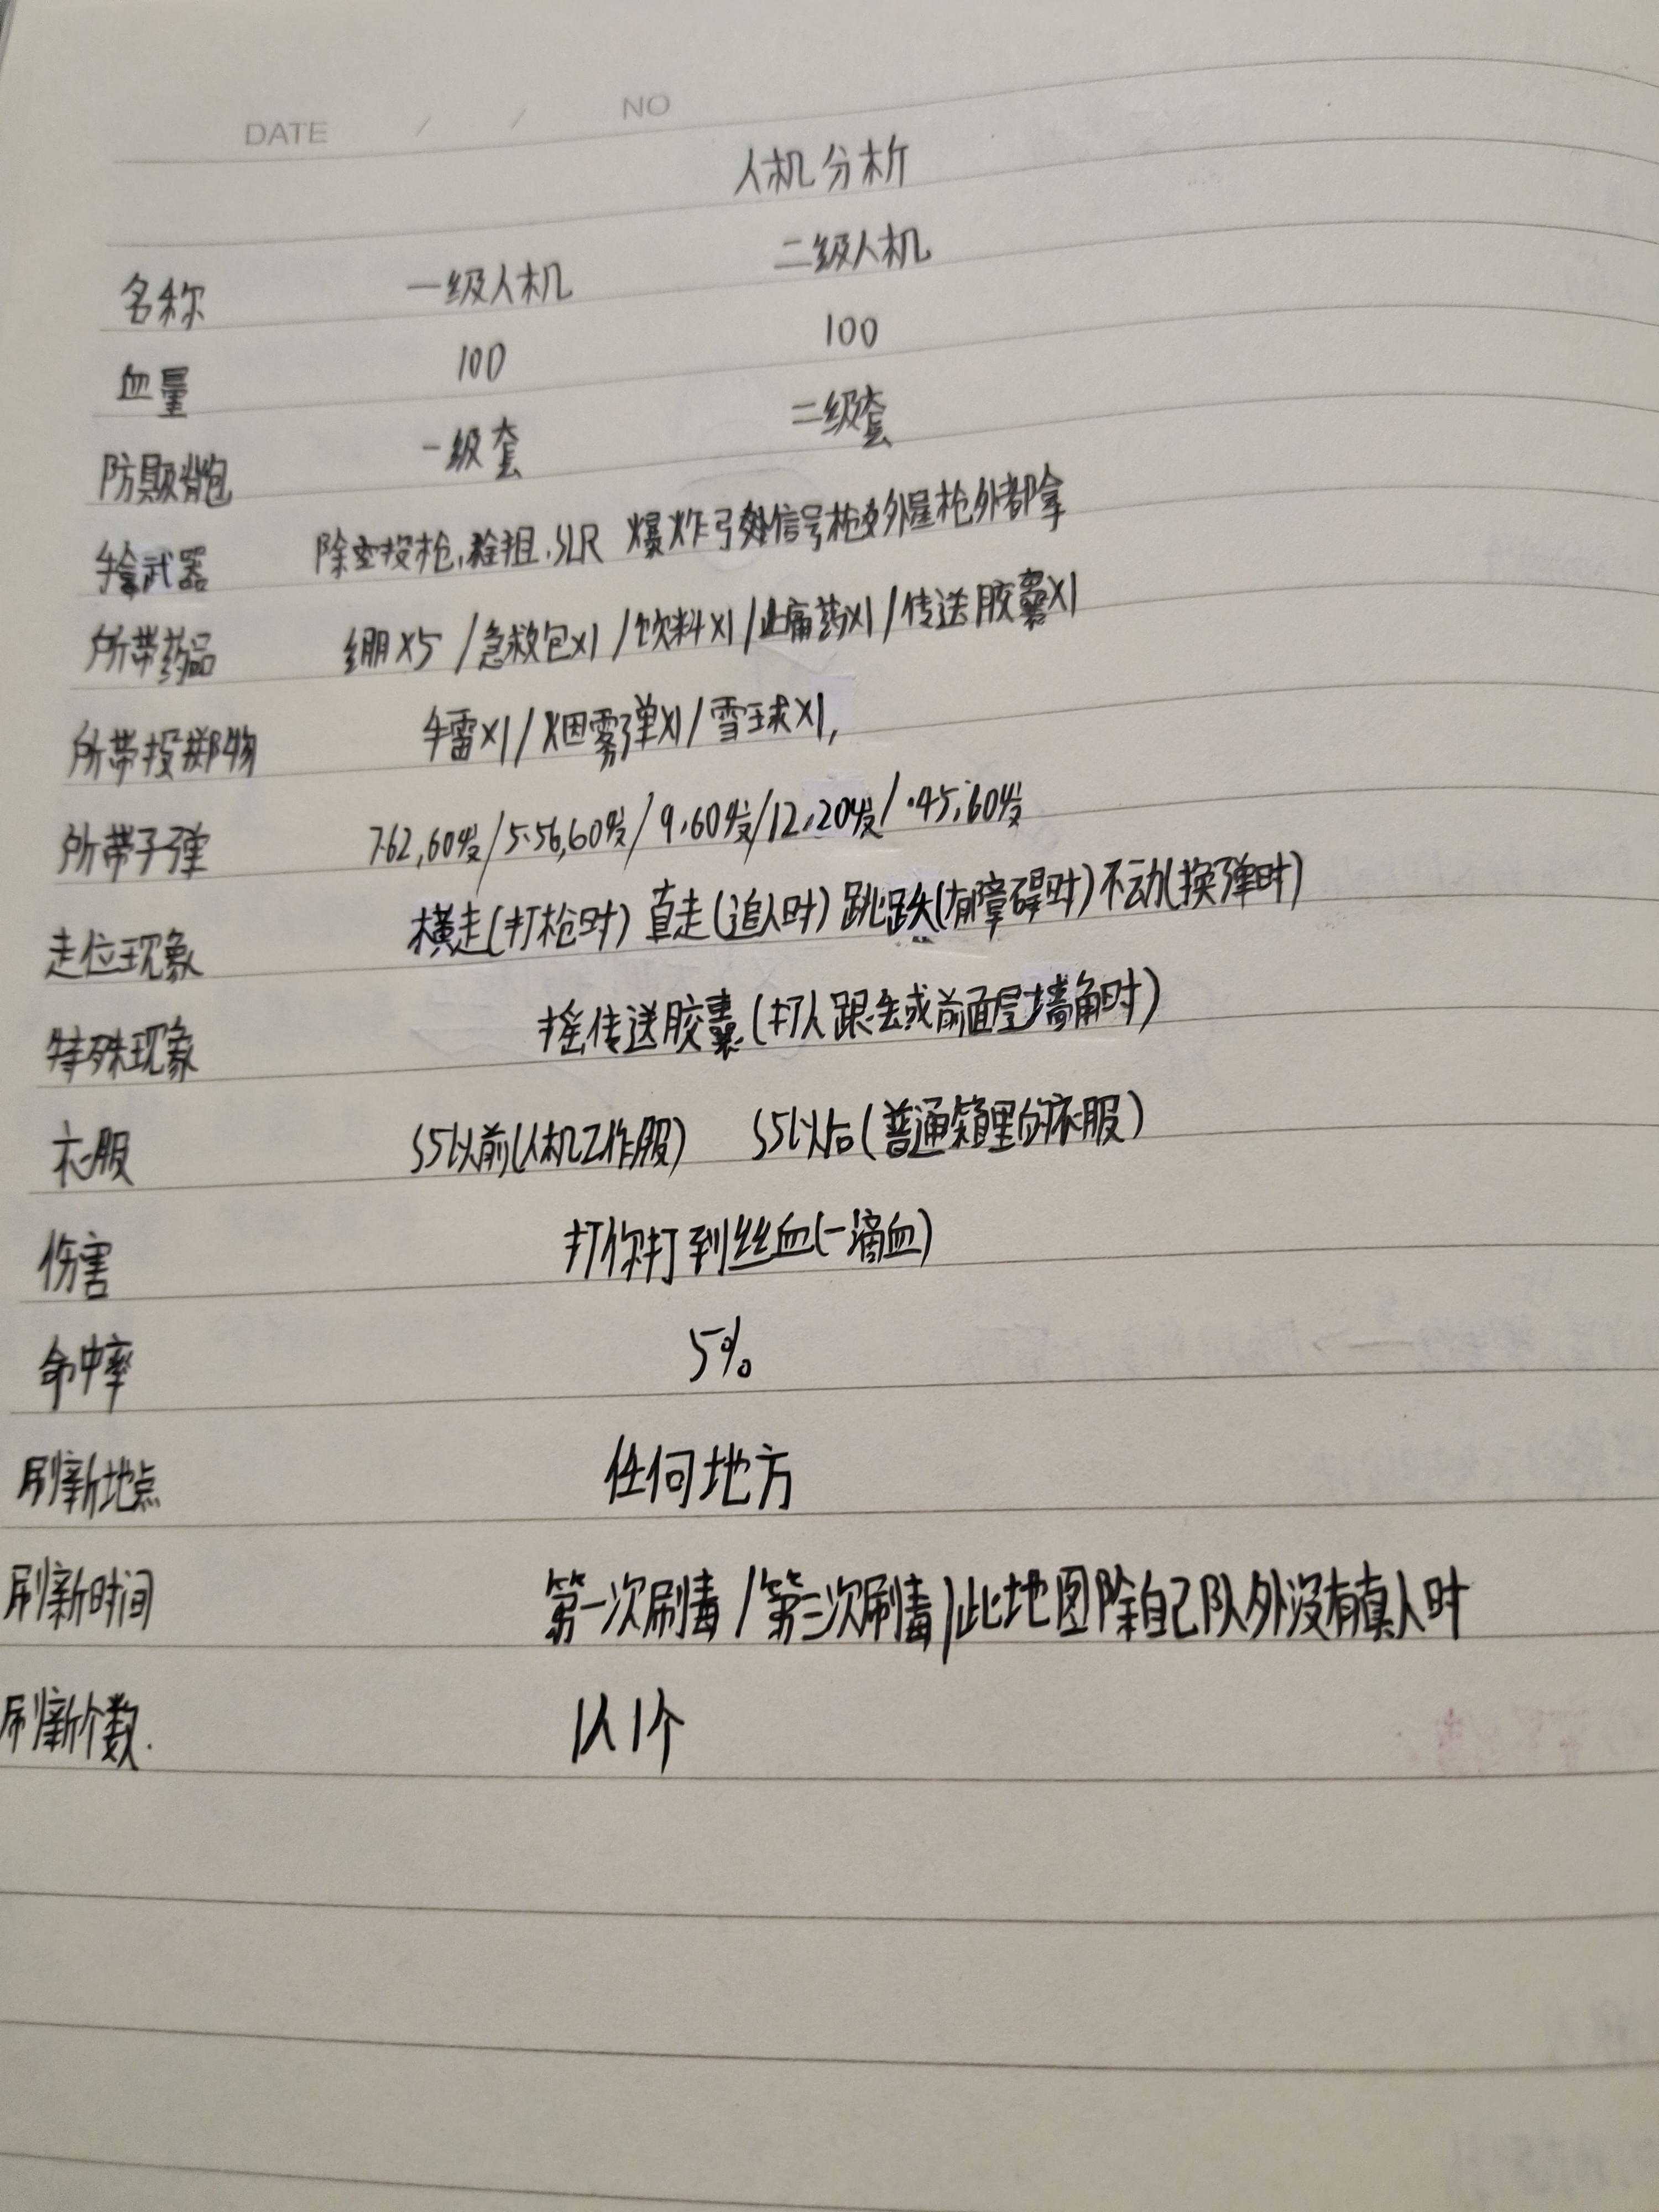 DATE / / NO
人机分析
名称 一级人机 二级人机
血量 100 100
防具跟背包 一级套 二级套
手拿武器 除空投枪,栓狙,SLR 爆炸弓 信号枪及外星枪外都拿
所带药品 绷X5 /急救包X1 /饮料X1 /止痛药X1 /传送胶囊X1
所带投掷物 手雷X1/烟雾弹X1/雪球X1,
所带子弹 7.62,60发/5.56,60发/9,60发/12,20发/.45,60发
走位现象 横走(打枪时) 直走(追人时) 跳跃(有障碍时)不动(换弹时)
特殊现象 摇传送胶囊(打人跟丢或前面是墙角时)
衣服 S5以前(人机工作服) S5以后(普通箱里的衣服)
伤害 打你打到丝丝血(一滴血)
命中率 5%
刷新地点 任何地方
刷新时间 第一次刷毒/第三次刷毒/此地图除自己队外没有真人时
刷新个数. 1人1个